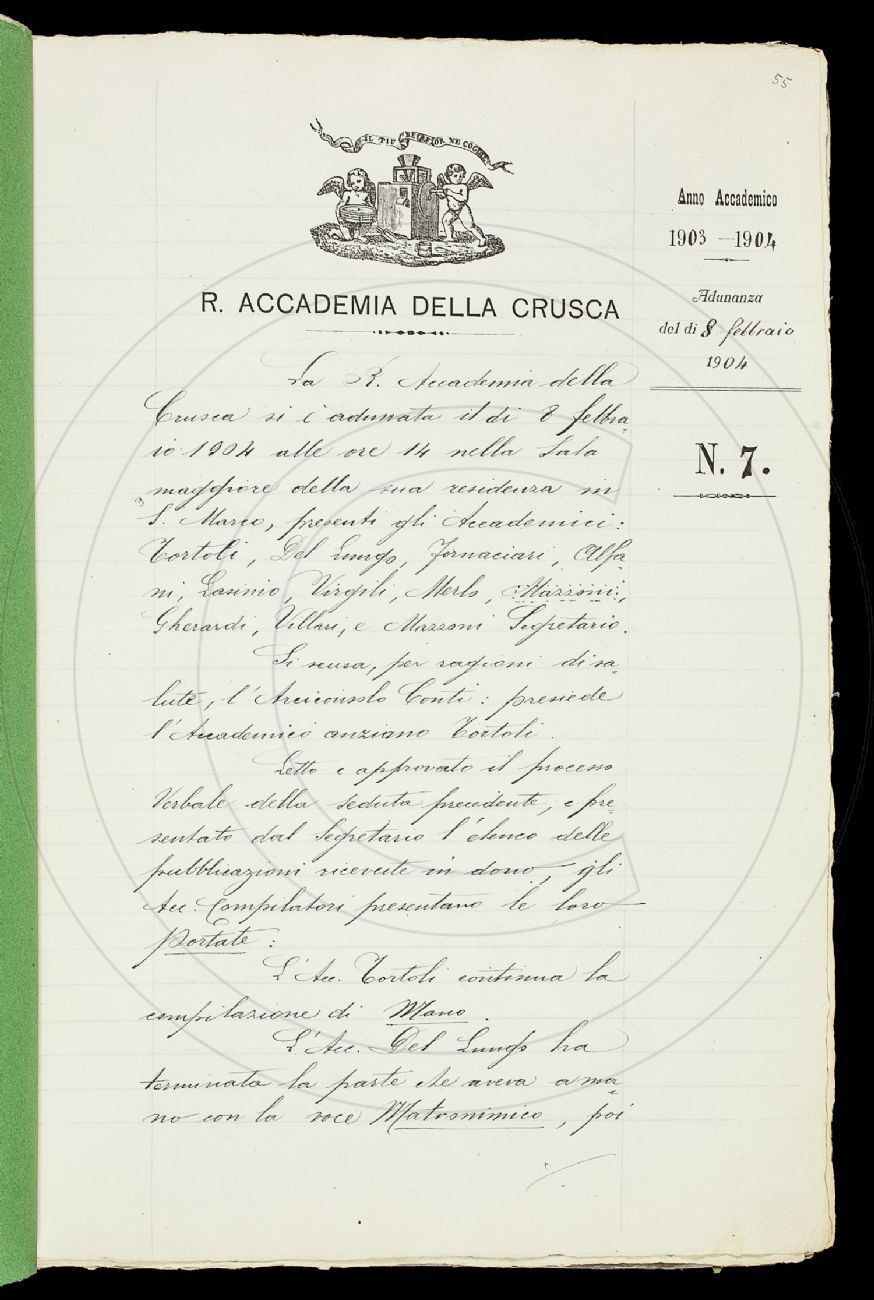 55
IL PIÙ BEL FIOR NE COGLIE
R. ACCADEMIA DELLA CRUSCA
Anno Accademico
1903-1904
Adunanza
del dì 8 febbraio
1904
N. 7.
La R. Accademia della
Crusca si è adunata il dì 8 febbra=
io 1904 alle ore 14 nella Sala
maggiore della sua residenza in
S. Marco, presenti gli Accademici:
Tortoli, Del Lungo, Fornaciari, Alfa
ni, Lasinio, Virgili, Merlo, Mazzoni,
Gherardi, Villari, e Mazzoni Segretario.
Si scusa, per ragioni di sa=
lute, l'Arciconsolo Conti: presiede
l'Accademico anziano Tortoli.
Letto e approvato il processo
Verbale della seduta precedente, e pre=
sentato dal Segretario l'elenco delle
pubblicazioni ricevute in dono, gli
Acc. Compilatori presentano le loro
portate:
L'Acc. Tortoli continua la
compilazione di Mano.
L'Acc. Del Lungo ha
terminata la parte che aveva a ma=
no con la voce Matronimico, poi